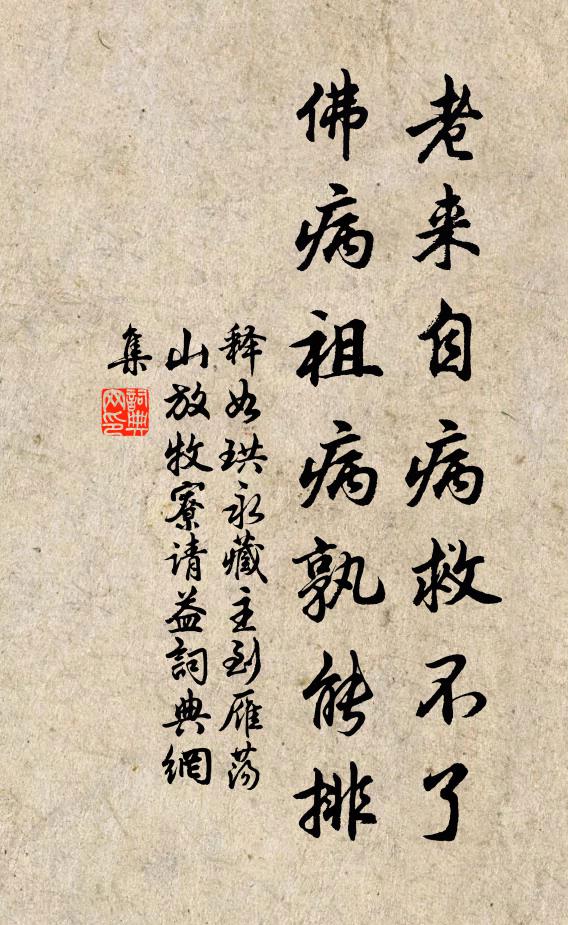 老来自病救不了
佛病祖病孰能排
释如珙永藏主到雁荡
山放牧寮请益詞典網
集
詞典
网印